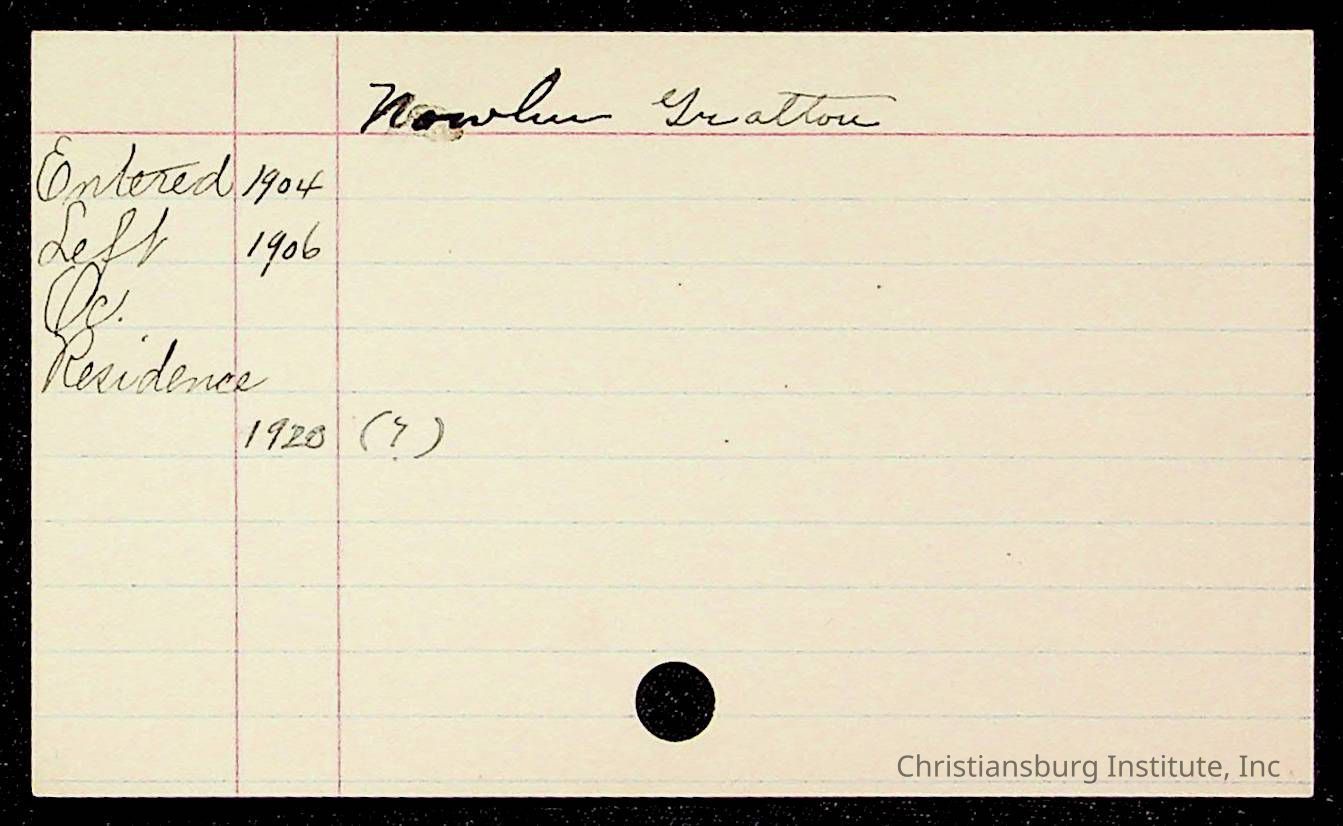 Nowlin Gratton
Entered 1904
Left 1906
Oc.
Residence
1920 (?)
Christiansburg Institute, Inc